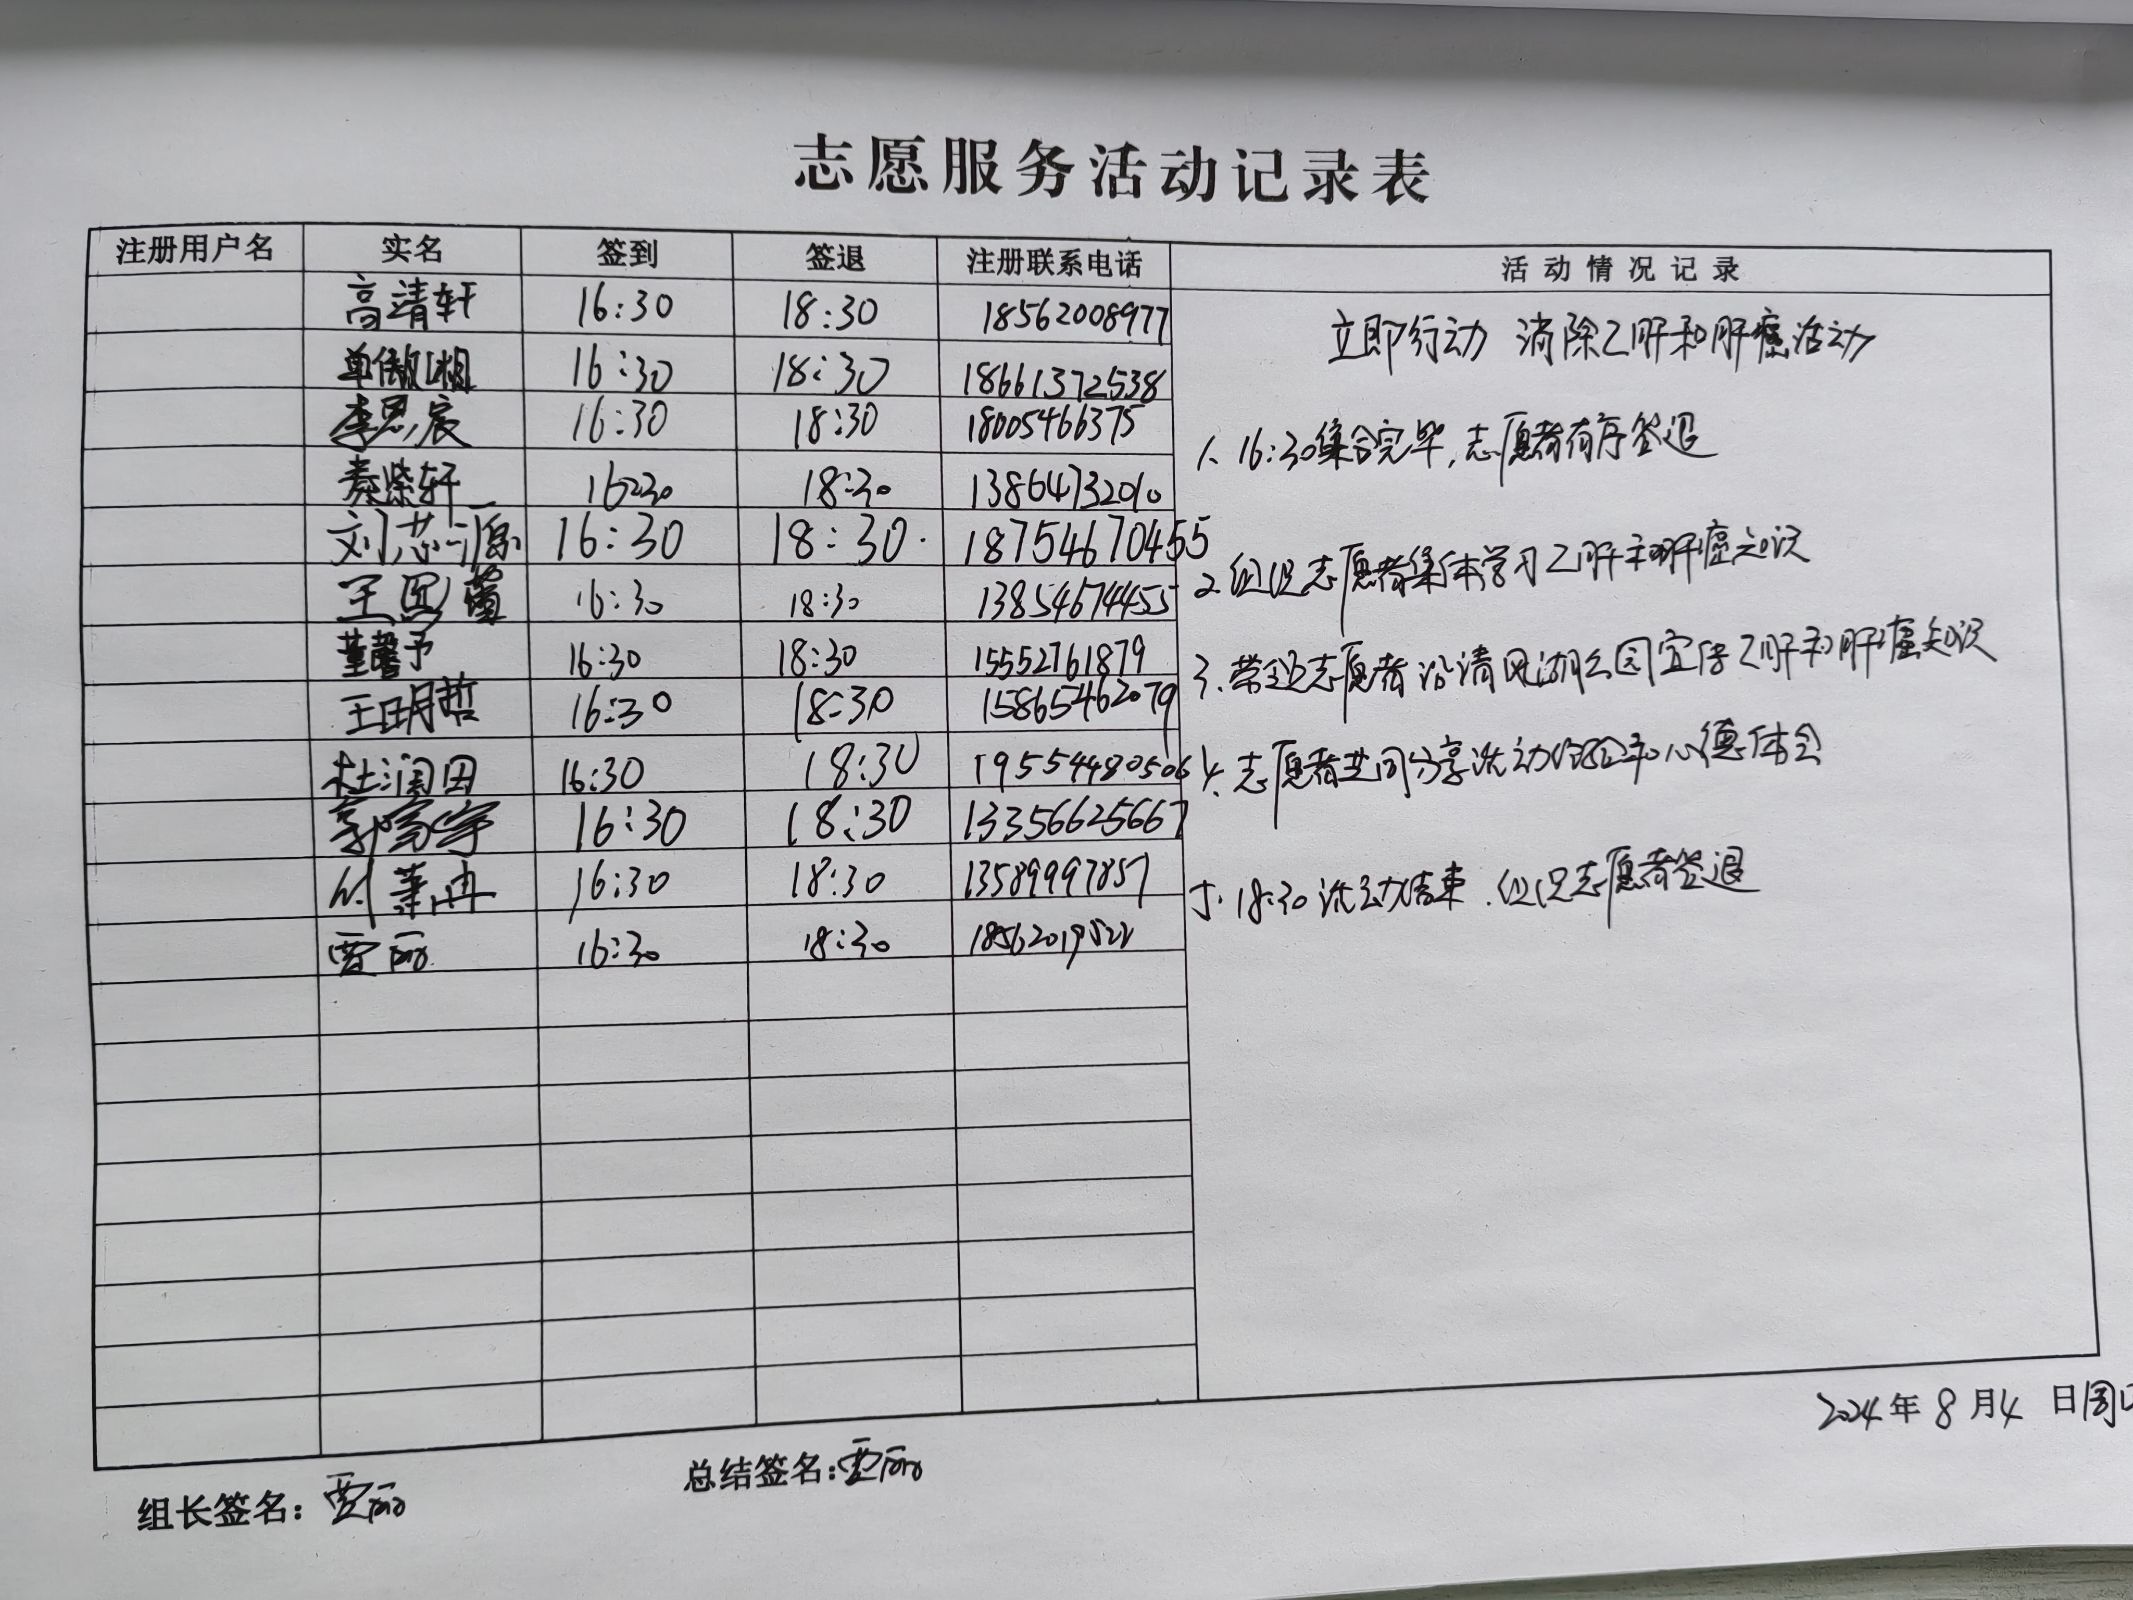 志愿服务活动记录表
注册用户名 实名 签到 签退 注册联系电话 活动情况记录
高靖轩 16:30 18:30 18562008977
16:30 18:30 18661372538
李思宸 16:30 18:30 18005466375
秦紫轩 16:30 18:30 13864732010
刘芯源 16:30 18:30. 18754670455
王思蕾 16:30 18:30 13854674455
董馨予 16:30 18:30 15552761879
王玥哲 16:30 18:30 15865462079
杜润田 16:30 18:30 19554480506
16:30 18:30 13356625667
16:30 18:30 13589997857
贾丽 16:30 18:30 18562019522
立即行动 消除乙肝和肝癌活动
1、16:30集合完毕,志愿者有序签退
2、组织志愿者集体学习乙肝和肝癌知识
3、带领志愿者沿清风湖公园宣传乙肝和肝癌知识
4、志愿者共同分享活动经验和心德体会
5.18:30活动结束.组织志愿者签退
2024年8月4日周日
组长签名:贾丽
总结签名:贾丽